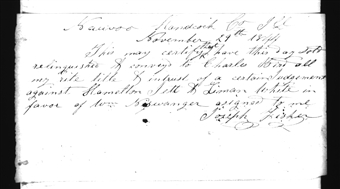 Nauvoo Hancock Co Ill
November 29th 1844
This may certify that I have this day sold
relinquished & conveyd to Charles
my rite title & intrest of a certain Judgement
against Hamelton & Liman White in
favor of Wm Niswanger assigned to me
Joseph Fisher